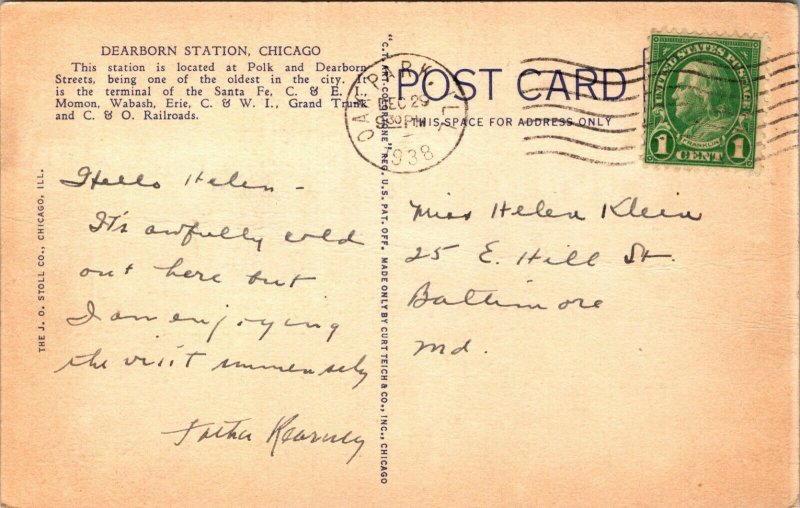 DEARBORN STATION, CHICAGO
This station is located at Polk and Dearborn
Streets, being one of the oldest in the city. It
is the terminal of the Santa Fe, C. & E. I.,
Momon, Wabash, Erie, C. & W. I., Grand Trunk
and C. & O. Railroads.
Hello Helen -
It's awfully cold
out here but
I am enjoying
the visit immensely
Father Kearney
THE J. O. STOLL CO., CHICAGO, ILL.
"C.T. ART-COLORTONE" REG. U.S. PAT. OFF. MADE ONLY BY CURT TEICH & CO., INC., CHICAGO
OAK PARK, ILL.
DEC 29
PM
1938
POST CARD
THIS SPACE FOR ADDRESS ONLY
UNITED STATES POSTAGE
FRANKLIN
1 CENT 1
Miss Helen Klein
25 E. Hill St.
Baltimore
Md.